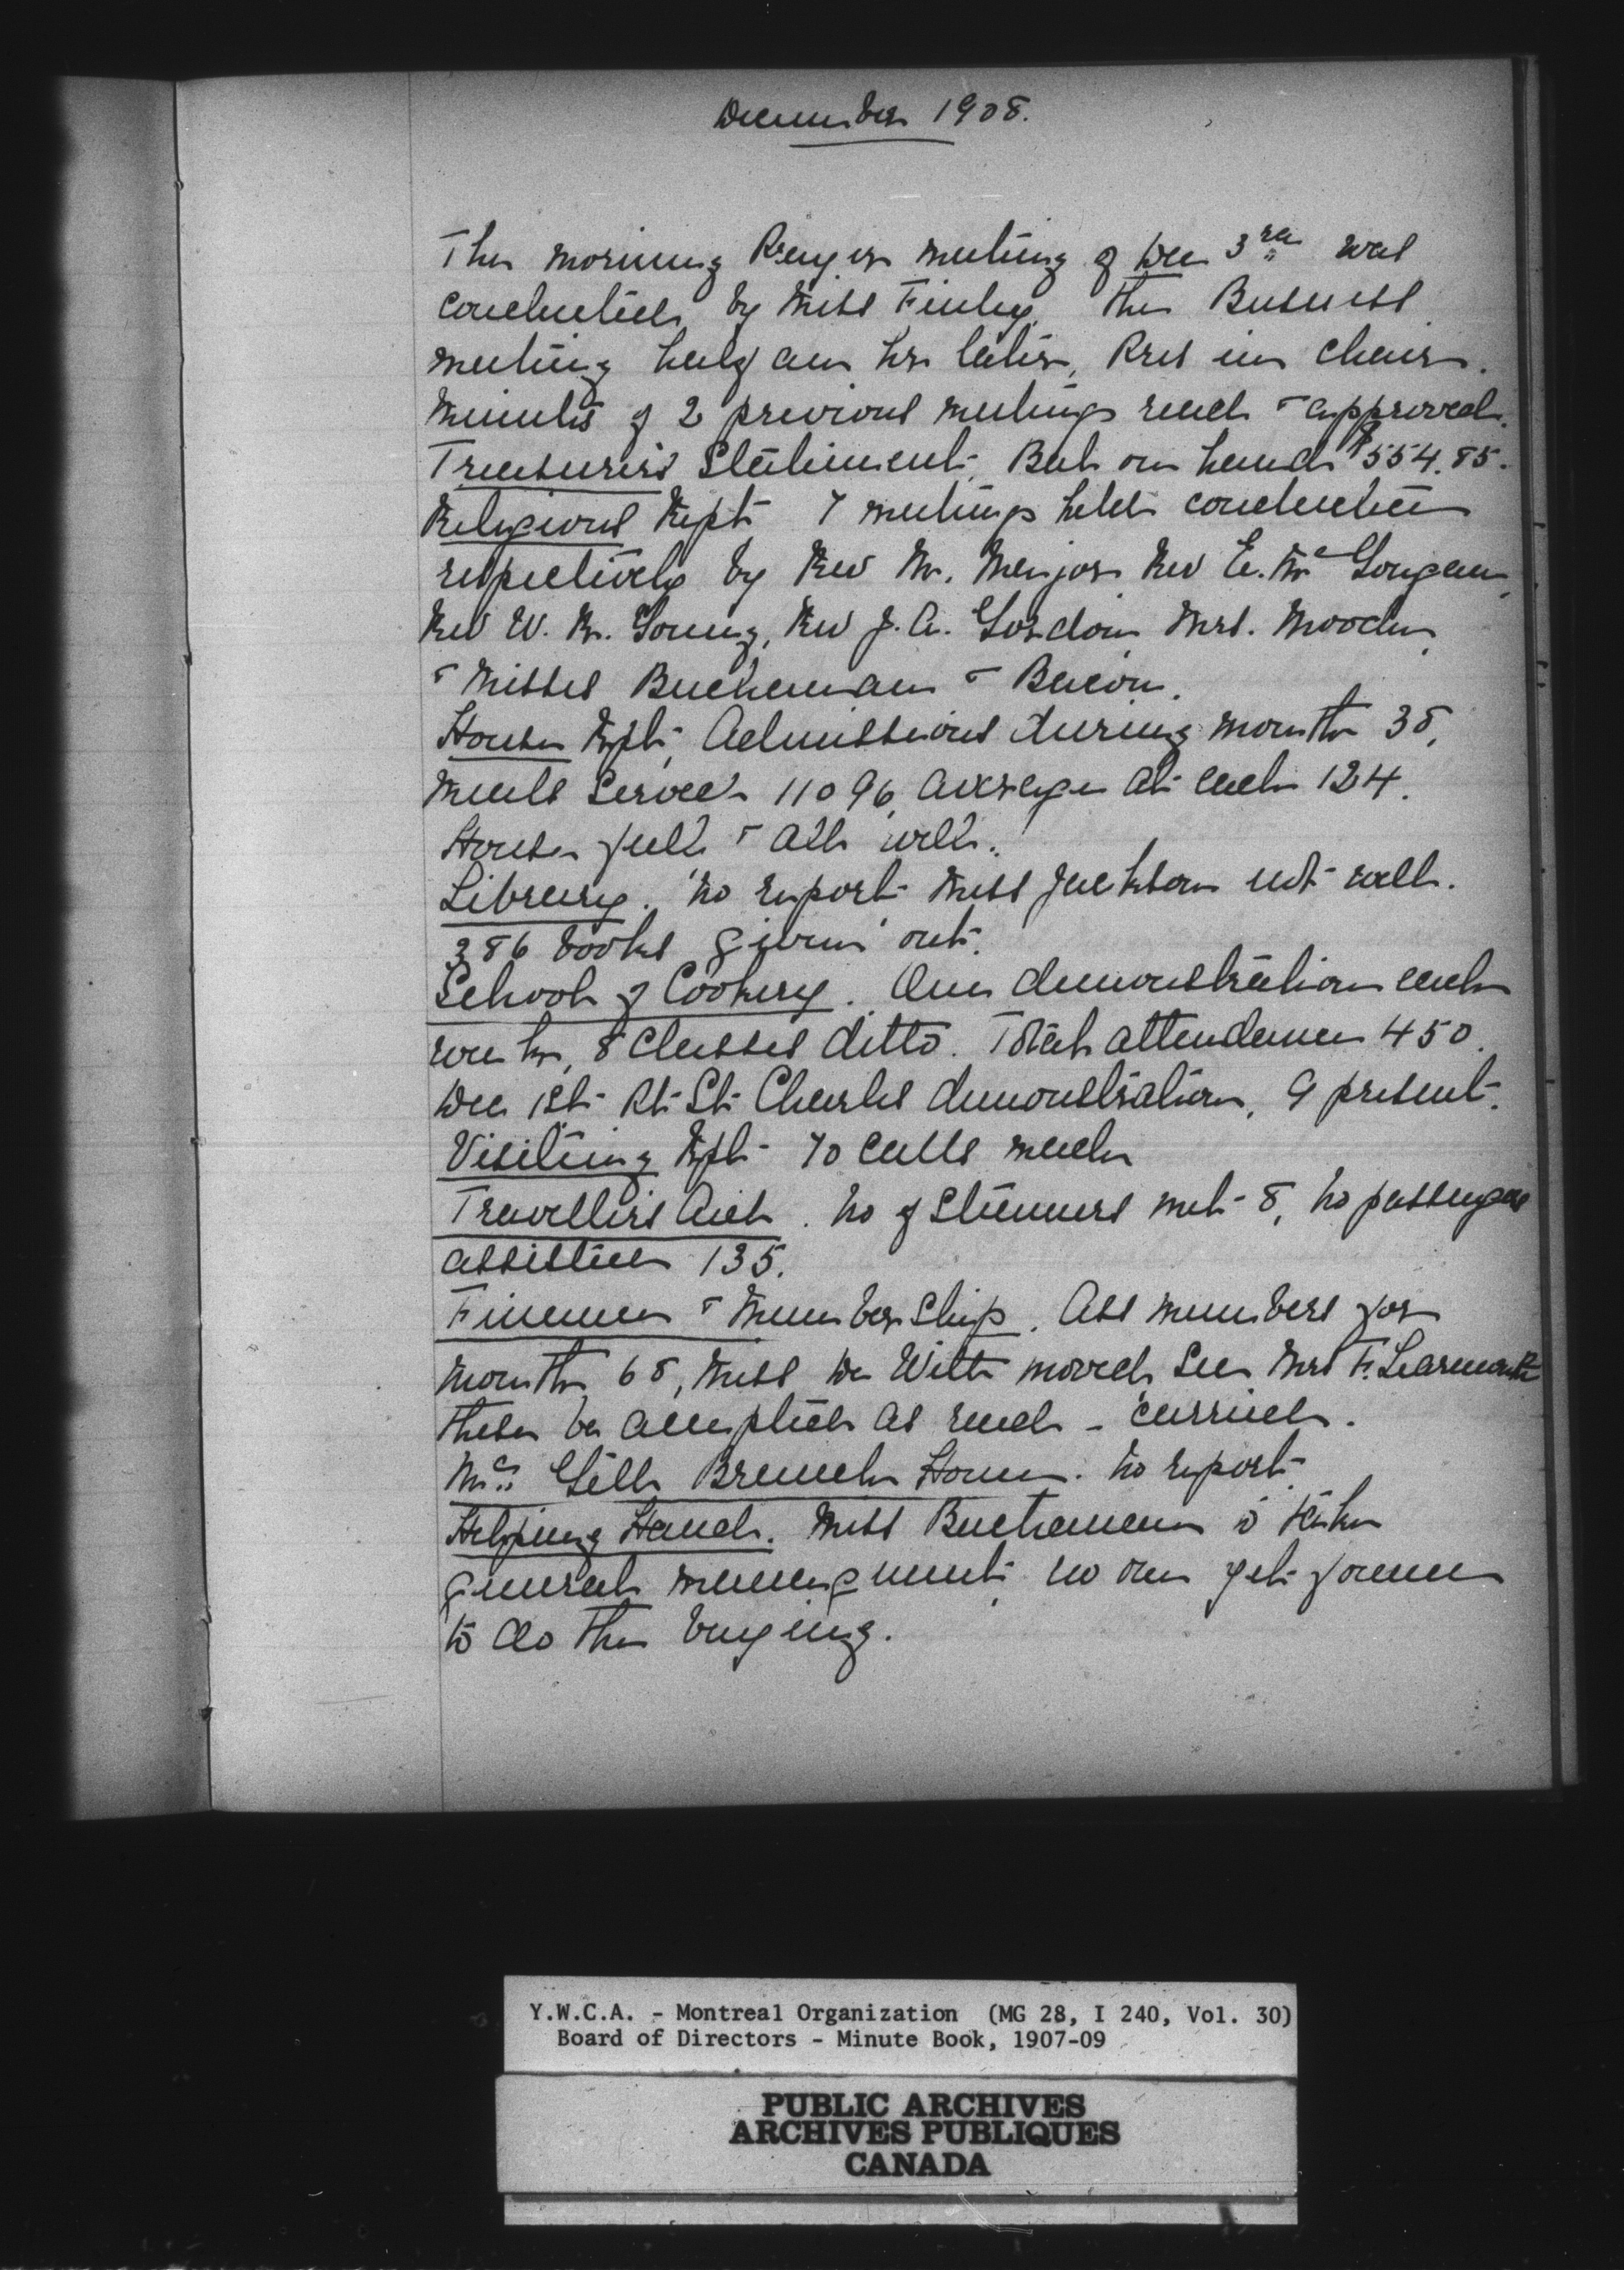 December 1908.
The morning Prayer meeting of Dec 3rd was
conducted by Miss Finley. The Business
meeting half an hr later, Pres in Chair.
Minutes of 2 previous meetings read & approved.
Treasurer's Statement. Bal on hand $554.85.
Religious Rept 7 meetings held conducted
respectively by Rev Mr. Major Rev E. Mc Gougan,
Rev W. R. Young, Rev J. A. Gordon Mrs. Moodie,
& Misses Buchanan & Bacon.
House Rept, Admissions during month 38,
meals served 11096, average at each 124.
House full & all well.
Library. No report Miss Jackson not well.
386 books given out.
School of Cookery. One demonstration each
week, 8 Classes ditto. Total attendance 450.
Dec 1st Pt St Charles demonstration, 9 present.
Visiting Rept 70 calls made
Travellers Aid. No of Steamers met 8, no passengers
assisted 135.
Finance & Membership. Ass members for
month 68, Miss De Witt moved, Sec Mrs F. Learmonth
these be accepted as read - carried.
Mc Gill Branch Home. No report
Helping Hand. Miss Buchanan to take
general management, no one yet found
to do the buying.
Y.W.C.A. - Montreal Organization (MG 28, I 240, Vol. 30)
Board of Directors - Minute Book, 1907-09
PUBLIC ARCHIVES
ARCHIVES PUBLIQUES
CANADA